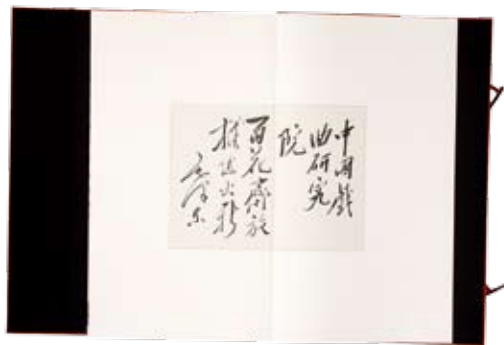 中国戲
曲研究
院
百花齊放
推陈出新
毛泽东